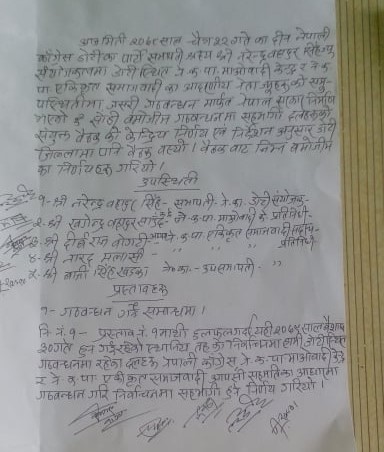 आज मिति २०७८ साल चैत्र २२ गते का दीन नेपाली
कांग्रेस डोटीका पार्टी सभापती श्री नरेन्द्र बहादुर सिंहज्यू
संयोजकत्वमा डोटी स्थित ने.क.पा. माओवादी केन्द्र र ने.क.
पा. एकिकृत समाजवादी का आदरणीय नेता ज्यूहरुको समु-
परिस्थितीमा जसरी गठबन्धन मार्फत नेपाल सरकार निर्माण
भएको छ सोही बमोजिम गठबन्धनमा सहभागी दलहरुको
संयुक्त बैठक को केन्द्रिय निर्णय एवं निर्देशन अनुसार डोटी
जिल्लामा पनि बैठक बस्यो । बैठक बाट निम्न बमोजिम
का निर्णयहरु गरियो ।
उपस्थिती
१- श्री नरेन्द्र बहादुर सिंह- सभापती ने.का. डोटी संयोजक-
२- श्री खगेन्द्र बहादुर ने.क.पा. माओवादी के प्रतिनिधी-
३- श्री दीर्घ राज बोगटी ने.क.पा. एकिकृत समाजवादी
प्रतिनिधी
४- श्री नारद मलासी - " " "
५- श्री बानी सिंह खडका ने.का.- उपसभापती - "
प्रस्तावहरु
१- गठबन्धन गर्ने सम्बन्धमा ।
नि.नं. १- प्रस्ताव नं. १ माथी छलफल गर्दा यही २०७९ साल बैशाख
३० गते हुन गई रहेको स्थानिय तह को निर्वाचनमा हामी डोटी स्थित
गठबन्धनमा रहेका दलहरु नेपाली कांग्रेस, ने.क.पा. माओवादी केन्द्र
र ने.क.पा. एकीकृत समाजवादी आपसी सहमतिका आधारमा
गठबन्धन गरि निर्वाचनमा सहभागी हुने निर्णय गरियो ।